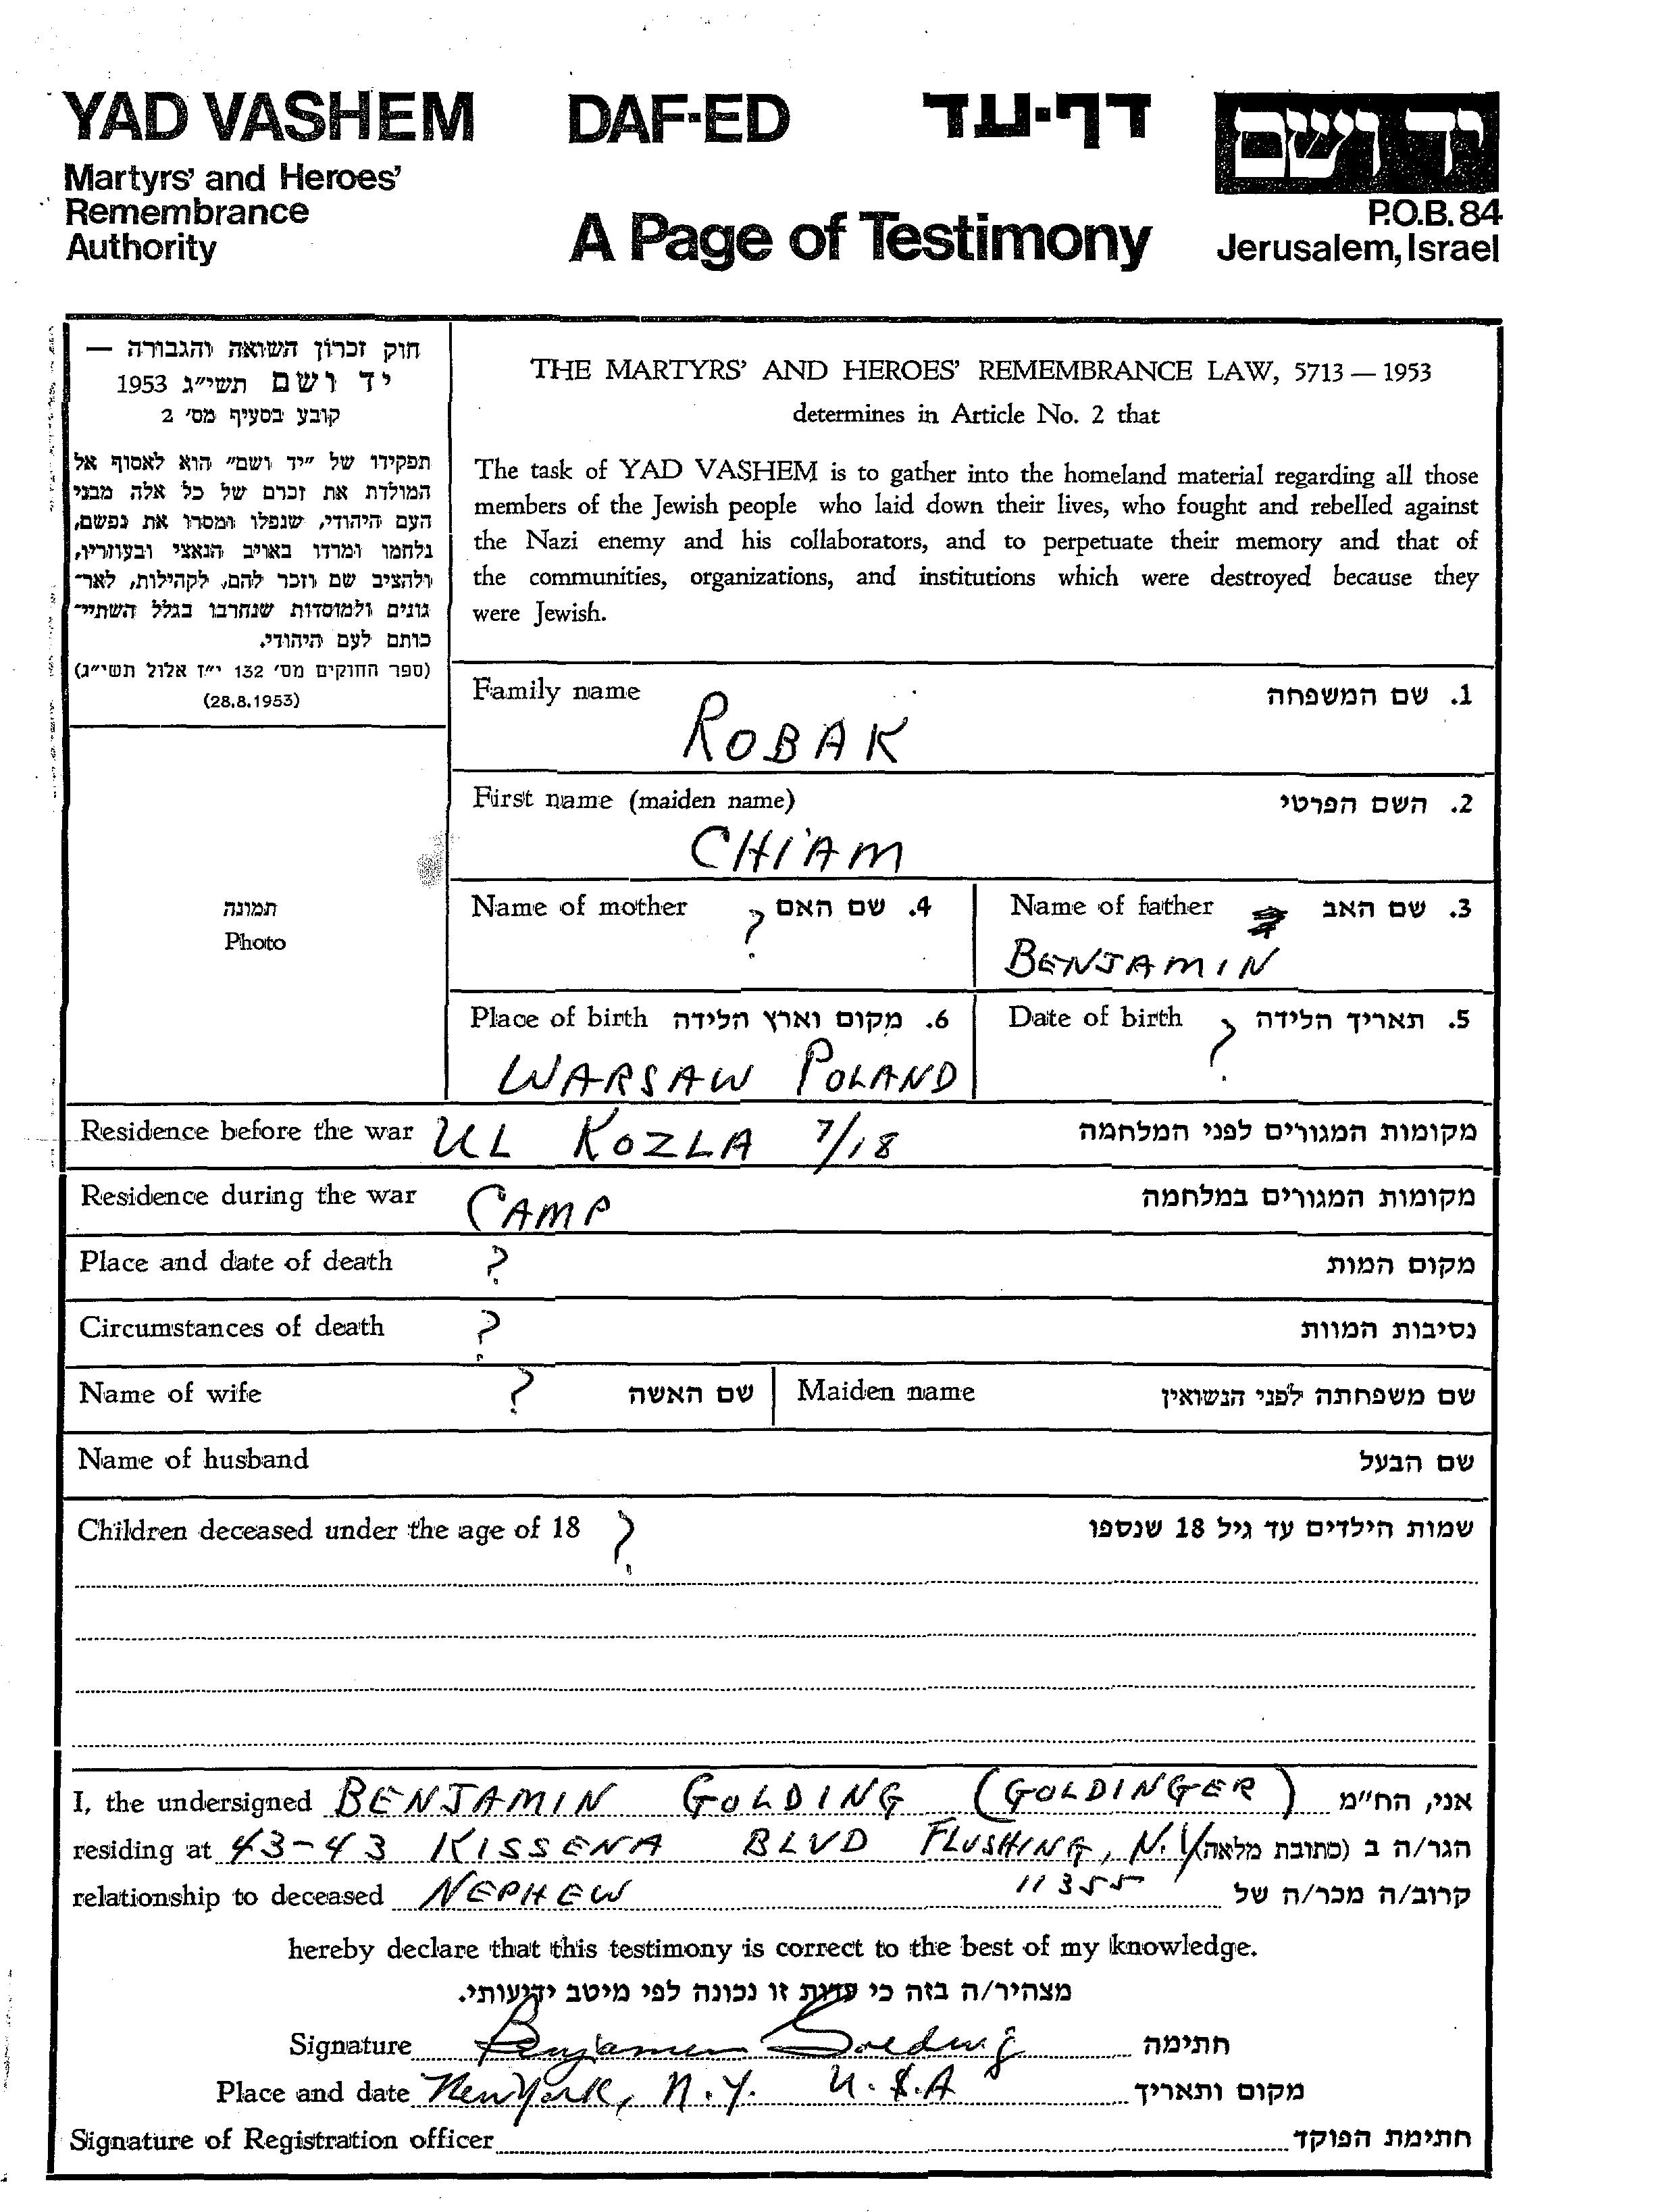 YAD VASHEM DAF-ED דף-עד יד ושם
Martyrs' and Heroes'
Remembrance
Authority
A Page of Testimony
P.O.B. 84
Jerusalem, Israel
חוק זכרון השואה והגבורה —
יד ושם תשי״ג 1953
קובע בסעיף מס׳ 2
תפקידו של ״יד ושם״ הוא לאסוף אל
המולדת את זכרם של כל אלה מבני
העם היהודי, שנפלו ומסרו את נפשם,
נלחמו ומרדו באויב הנאצי ובעוזריו,
ולהציב שם וזכר להם, לקהילות, לאר־
גונים ולמוסדות שנחרבו בגלל השתיי־
כותם לעם היהודי.
(ספר החוקים מס׳ 132 י״ז אלול תשי״ג)
(28.8.1953)
THE MARTYRS' AND HEROES' REMEMBRANCE LAW, 5713 — 1953
determines in Article No. 2 that
The task of YAD VASHEM is to gather into the homeland material regarding all those
members of the Jewish people who laid down their lives, who fought and rebelled against
the Nazi enemy and his collaborators, and to perpetuate their memory and that of
the communities, organizations, and institutions which were destroyed because they
were Jewish.
תמונה
Photo
Family name 1. שם המשפחה
ROBAK
First name (maiden name) 2. השם הפרטי
CHIAM
Name of mother ? 4. שם האם
Name of father 3. שם האב
BENJAMIN
Place of birth 6. מקום וארץ הלידה
WARSAW POLAND
Date of birth ? 5. תאריך הלידה
Residence before the war UL KOZLA 7/18 מקומות המגורים לפני המלחמה
Residence during the war CAMP מקומות המגורים במלחמה
Place and date of death ? מקום המות
Circumstances of death ? נסיבות המוות
Name of wife ? שם האשה Maiden name שם משפחתה לפני הנשואין
Name of husband שם הבעל
Children deceased under the age of 18 ? שמות הילדים עד גיל 18 שנספו
I, the undersigned BENJAMIN GOLDING (GOLDINGER) אני, הח״מ
residing at 43-43 KISSENA BLVD FLUSHING, N.Y הגר/ה ב (כתובת מלאה)
11355
relationship to deceased NEPHEW קרוב/ה מכר/ה של
hereby declare that this testimony is correct to the best of my knowledge.
מצהיר/ה בזה כי עדות זו נכונה לפי מיטב ידיעותי.
Signature Benjamin Golding חתימה
Place and date New York, N.Y. U.S.A מקום ותאריך
Signature of Registration officer חתימת הפוקד